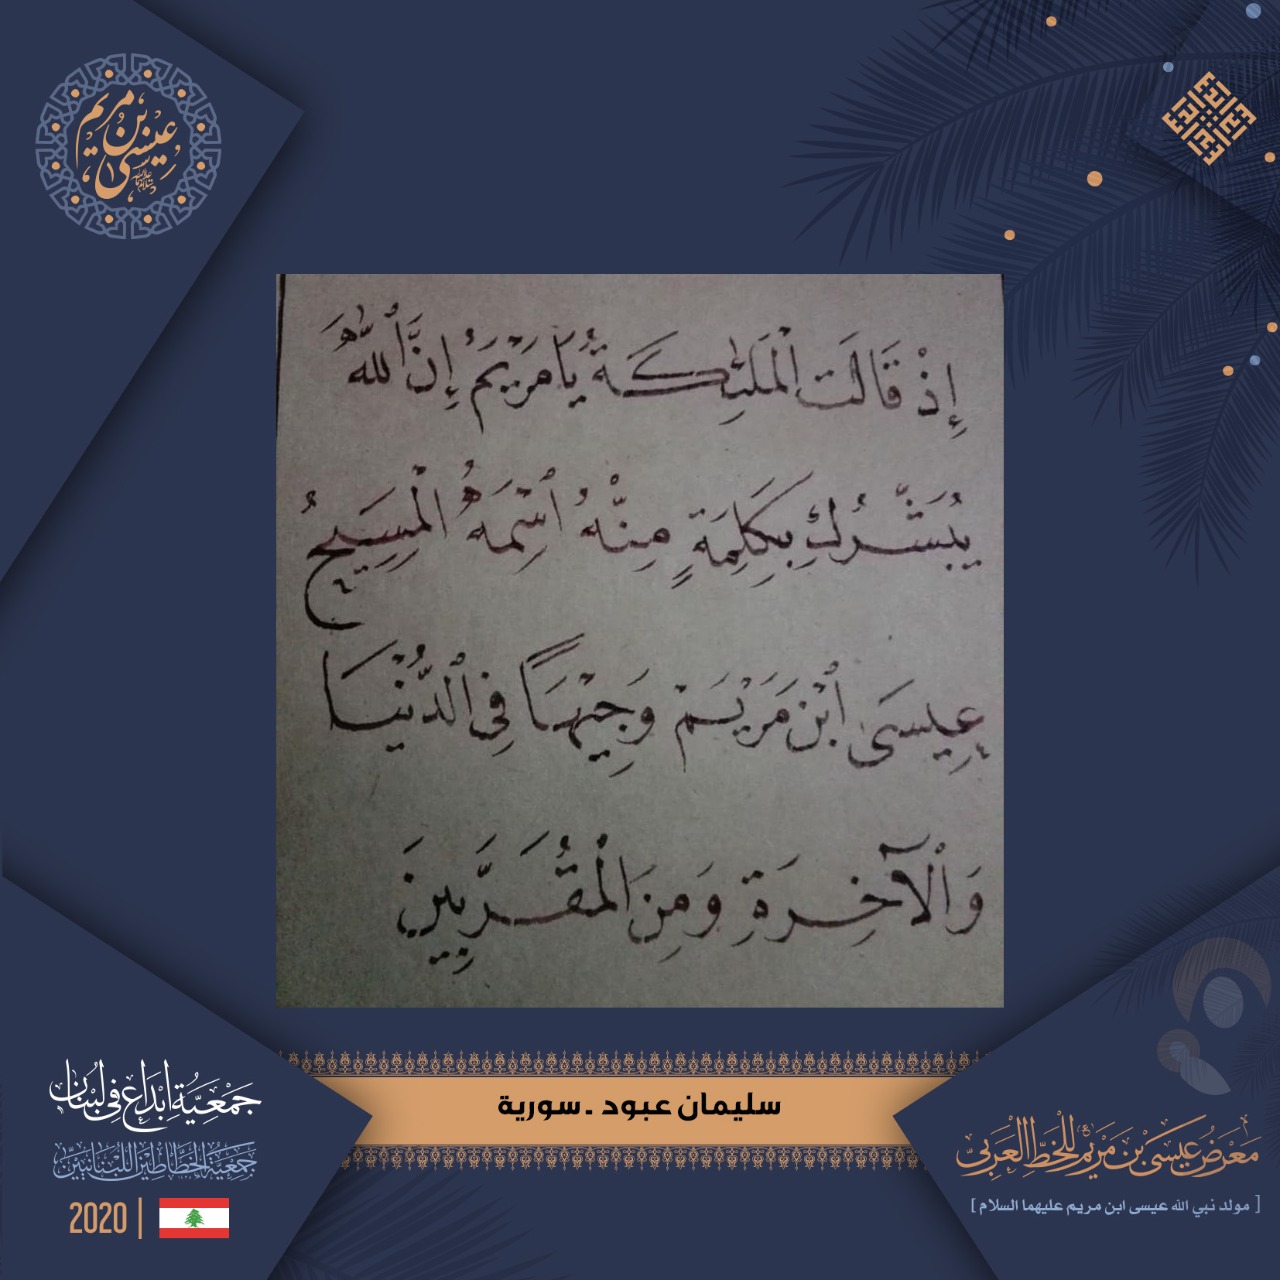 عيسى بن مريم
إِذْ قَالَتِ الْمَلَٰئِكَةُ يَا مَرْيَمُ إِنَّ ٱللَّهَ
يُبَشِّرُكِ بِكَلِمَةٍ مِنْهُ ٱسْمُهُ الْمَسِيحُ
عِيسَى ٱبْنُ مَرْيَمَ وَجِيهًا فِي ٱلدُّنْيَا
وَالْآخِرَةِ وَمِنَ الْمُقَرَّبِينَ
سليمان عبود - سورية
جَمْعِيَّةُ إِبْدَاع فِي لُبْنَان
جمعية الخطاطين اللبنانيين
2020
معرض عيسى بن مريم للخط العربي
[ مولد نبي الله عيسى ابن مريم عليهما السلام ]